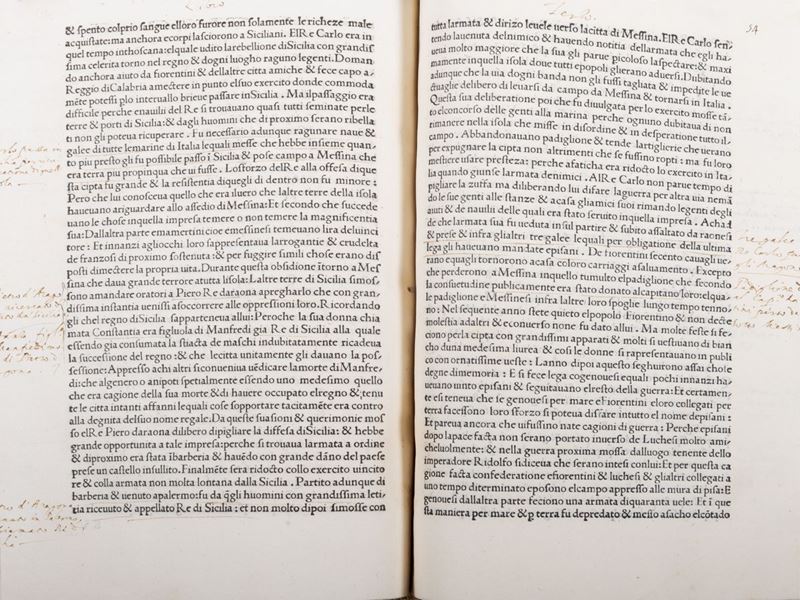 Libro
& spento colprio sangue elloro furore non solamente le richeze male
acquistate: ma anchora ecorpi lasciorono a Siciliani. ElRe Carlo era in
quel tempo inthoscana: elquale udito la rebellione di Sicilia con grandis
sima celerita torno nel regno & dogni luogho raguno legenti. Doman
do anchora aiuto da fiorentini & dellaltre citta amiche & fece capo a
Reggio di Calabria amectere in punto elsuo exercito donde commoda
mēte potessi plo interuallo brieue passare in Sicilia. Ma ilpassaggio era
difficile perche enauili del Re si trouauano quasi tutti seminate perle
terre & porti di Sicilia: & dagli huomini che di proximo serano ribella
ti non gli poteua ricuperare. Fu necessario adunque ragunare naue &
galee di tutte lemarine di Italia lequali messe che hebbe insieme quan
to piu presto gli fu possibile passo ī Sicilia & pose campo a Messina che
era terra piu propinqua che ui fusse. Losforzo delRe alla offesa dique
sta cipta fu grande & la resistentia diquegli di dentro non fu minore:
Pero che lui conosceua quello che era iluero che laltre terre della isola
haueuano ariguardare allo assedio di Messina: Et secondo che succede
uano le chose inquella impresa temere o non temere la magnificentia
sua: Dallaltra parte emamertini cioe emessinesi temeuano lira deluinci
tore: Et innanzi agliocchi loro sappresentaua larrogantie & crudelta
de franzosi di proximo sostenuta: & per fuggire simili chose erano dis
posti dimectere la propria uita. Durante questa obsidione itorno a Mes
sina che daua grande terrore atutta lisola: Laltre terre di Sicilia simos
sono amandare oratori a Piero Re daraona apregharlo che con gran
dissima instantia uenissi asoccorrere alle oppressioni loro. Ricordando
gli chel regno di Sicilia sapparteneua allui: Peroche la sua donna chia
mata Constantia era figluola di Manfredi gia Re di Sicilia alla quale
essendo gia consumata la stiacta de maschi indubitatamente ricadeua
la successione del regno: & che lecitta unitamente gli dauano la pos
sessione: Appresso achi altri si conueniua uēdicare lamorte di Manfre
di: che algenero o anipoti spetialmente essendo uno medesimo quello
che era cagione della sua morte & di hauere occupato elregno & tenu
te le citta intanti affanni lequali cose sopportare tacitamēte era contro
alla degnita delsuo nome regale. Da queste suasioni & querimonie mos
so elRe Piero daraona dilibero dipigliare la diffesa di Sicilia: & hebbe
grande opportunita a tale impresa: perche si trouaua larmata a ordine
& diproximo era stata ībarberia & hauēdo con grande dāno del paese
prese un castello insullito. Finalmēte sera ridocto collo exercito uincito
re & colla armata non molto lontana dalla Sicilia. Partito adunque di
barberia & uenuto apalermo: fu da q̄gli huomini con grandissima leti
tia riceuuto & appellato Re di Sicilia: et non molto dipoi simosse con
Terzo
54
tutta larmata & dirizo leuele uerso la citta di Messina. ElRe Carlo sen
tendo lauenuta delnimico & hauendo notitia dellarmata che egli ha
ueua molto maggiore che la sua gli parue picoloso laspectare: & maxi
mamente inquella isola doue tutti epopoli glierano aduersi. Dubitando
adunque che la uia dogni banda non gli fussi tagliata & impedite le ue
ctuaglie delibero di leuarsi da campo da Messina & tornarsi in Italia.
Questa sua deliberatione poi che fu diuulgata per lo exercito mosse tā
to elconcorso delle genti alla marina perche ognuno dubitaua di non
rimanere nella isola che misse in disordine & in desperatione tutto il
campo. Abbandonauano padiglione & tende lartiglierie che uerano
per expugnare la cipta non altrimenti che se fussino ropti: ma fu loro
mestiere usare presteza: perche afaticha era ridocto lo exercito in Ita
lia quando giunse larmata denimici. AlRe Carlo non parue tempo di
pigliare la zuffa ma diliberando lui difare laguerra per altra uia nemā
do le sue genti alle stanze & acasa gliamici suoi rimando legenti degli
aiuti & de nauilii delle quali era stato seruito inquella impresa. Achad
de che larmata sua fu ueduta insul partire & subito assaltato da raonesi
& prese & infra glialtri tre galee lequali per obligatione della ultima
lega gli haueuano mandate episani. De Fiorentini secento cauagli ue
rano equali tornorono acasa coloro carriaggi asaluamento. Excepto
che perderono a Messina inquello tumulto elpadiglione che secondo
la consuetudine publicamente era stato donato alcapitano loro: elqua
le padiglione e Messinesi infra laltre loro spoglie lungo tempo tenno
no: Nel sequente anno stete quieto elpopolo Fiorentino & non decte
molestia adaltri & econuerso none fu dato allui. Ma molte feste si fe
ciono perla cipta con grandissimi apparati & molti si uestiuano di bian
cho duna medesima liurea & cosi le donne si rapresentauano in publi
co con ornatissime ueste: Lanno dipoi aquesto seghuirono assai chose
degne dimemoria: E si fece lega cogenouesi equali pochi innanzi ha
ueuano uinto episani & seguitauano elresto della guerra: Et certamen
te si teneua che se genouesi per mare e Fiorentini eloro collegati per
terra facessono loro sforzo si poteua disfare intutto el nome depisani:
Et pareua ancora che uifussino nate cagioni di guerra: Perche episani
dopo lapace facta non serano portato inuerso de Luchesi molto ami
cheuolmente: & nella guerra proxima mossa dalluogo tenente dello
imperadore Ridolfo sidiceua che serano intesi conlui: Et per questa ca
gione facta confederatione efiorentini & luchesi & glialtri collegati a
uno tempo diterminato eposono elcampo appresso alle mura di pisa: E
genouesi dallaltra parte feciono una armata diquaranta uele: Et ī que
sta maniera per mare & p terra fu depredato & messo asacho elcōtado